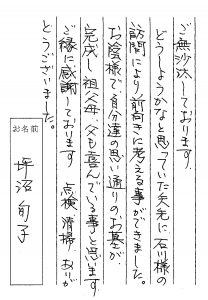 ご無沙汰しております。
どうしようかなと思っていた矢先に石川様の
訪問により前向きに考える事ができました。
お陰様で自分達の思い通りのお墓が
完成し祖父母、父も喜んでいる事と思います。
ご縁に感謝しております。点検、清掃、ありが
とうございました。
お名前
坪沼 旬子